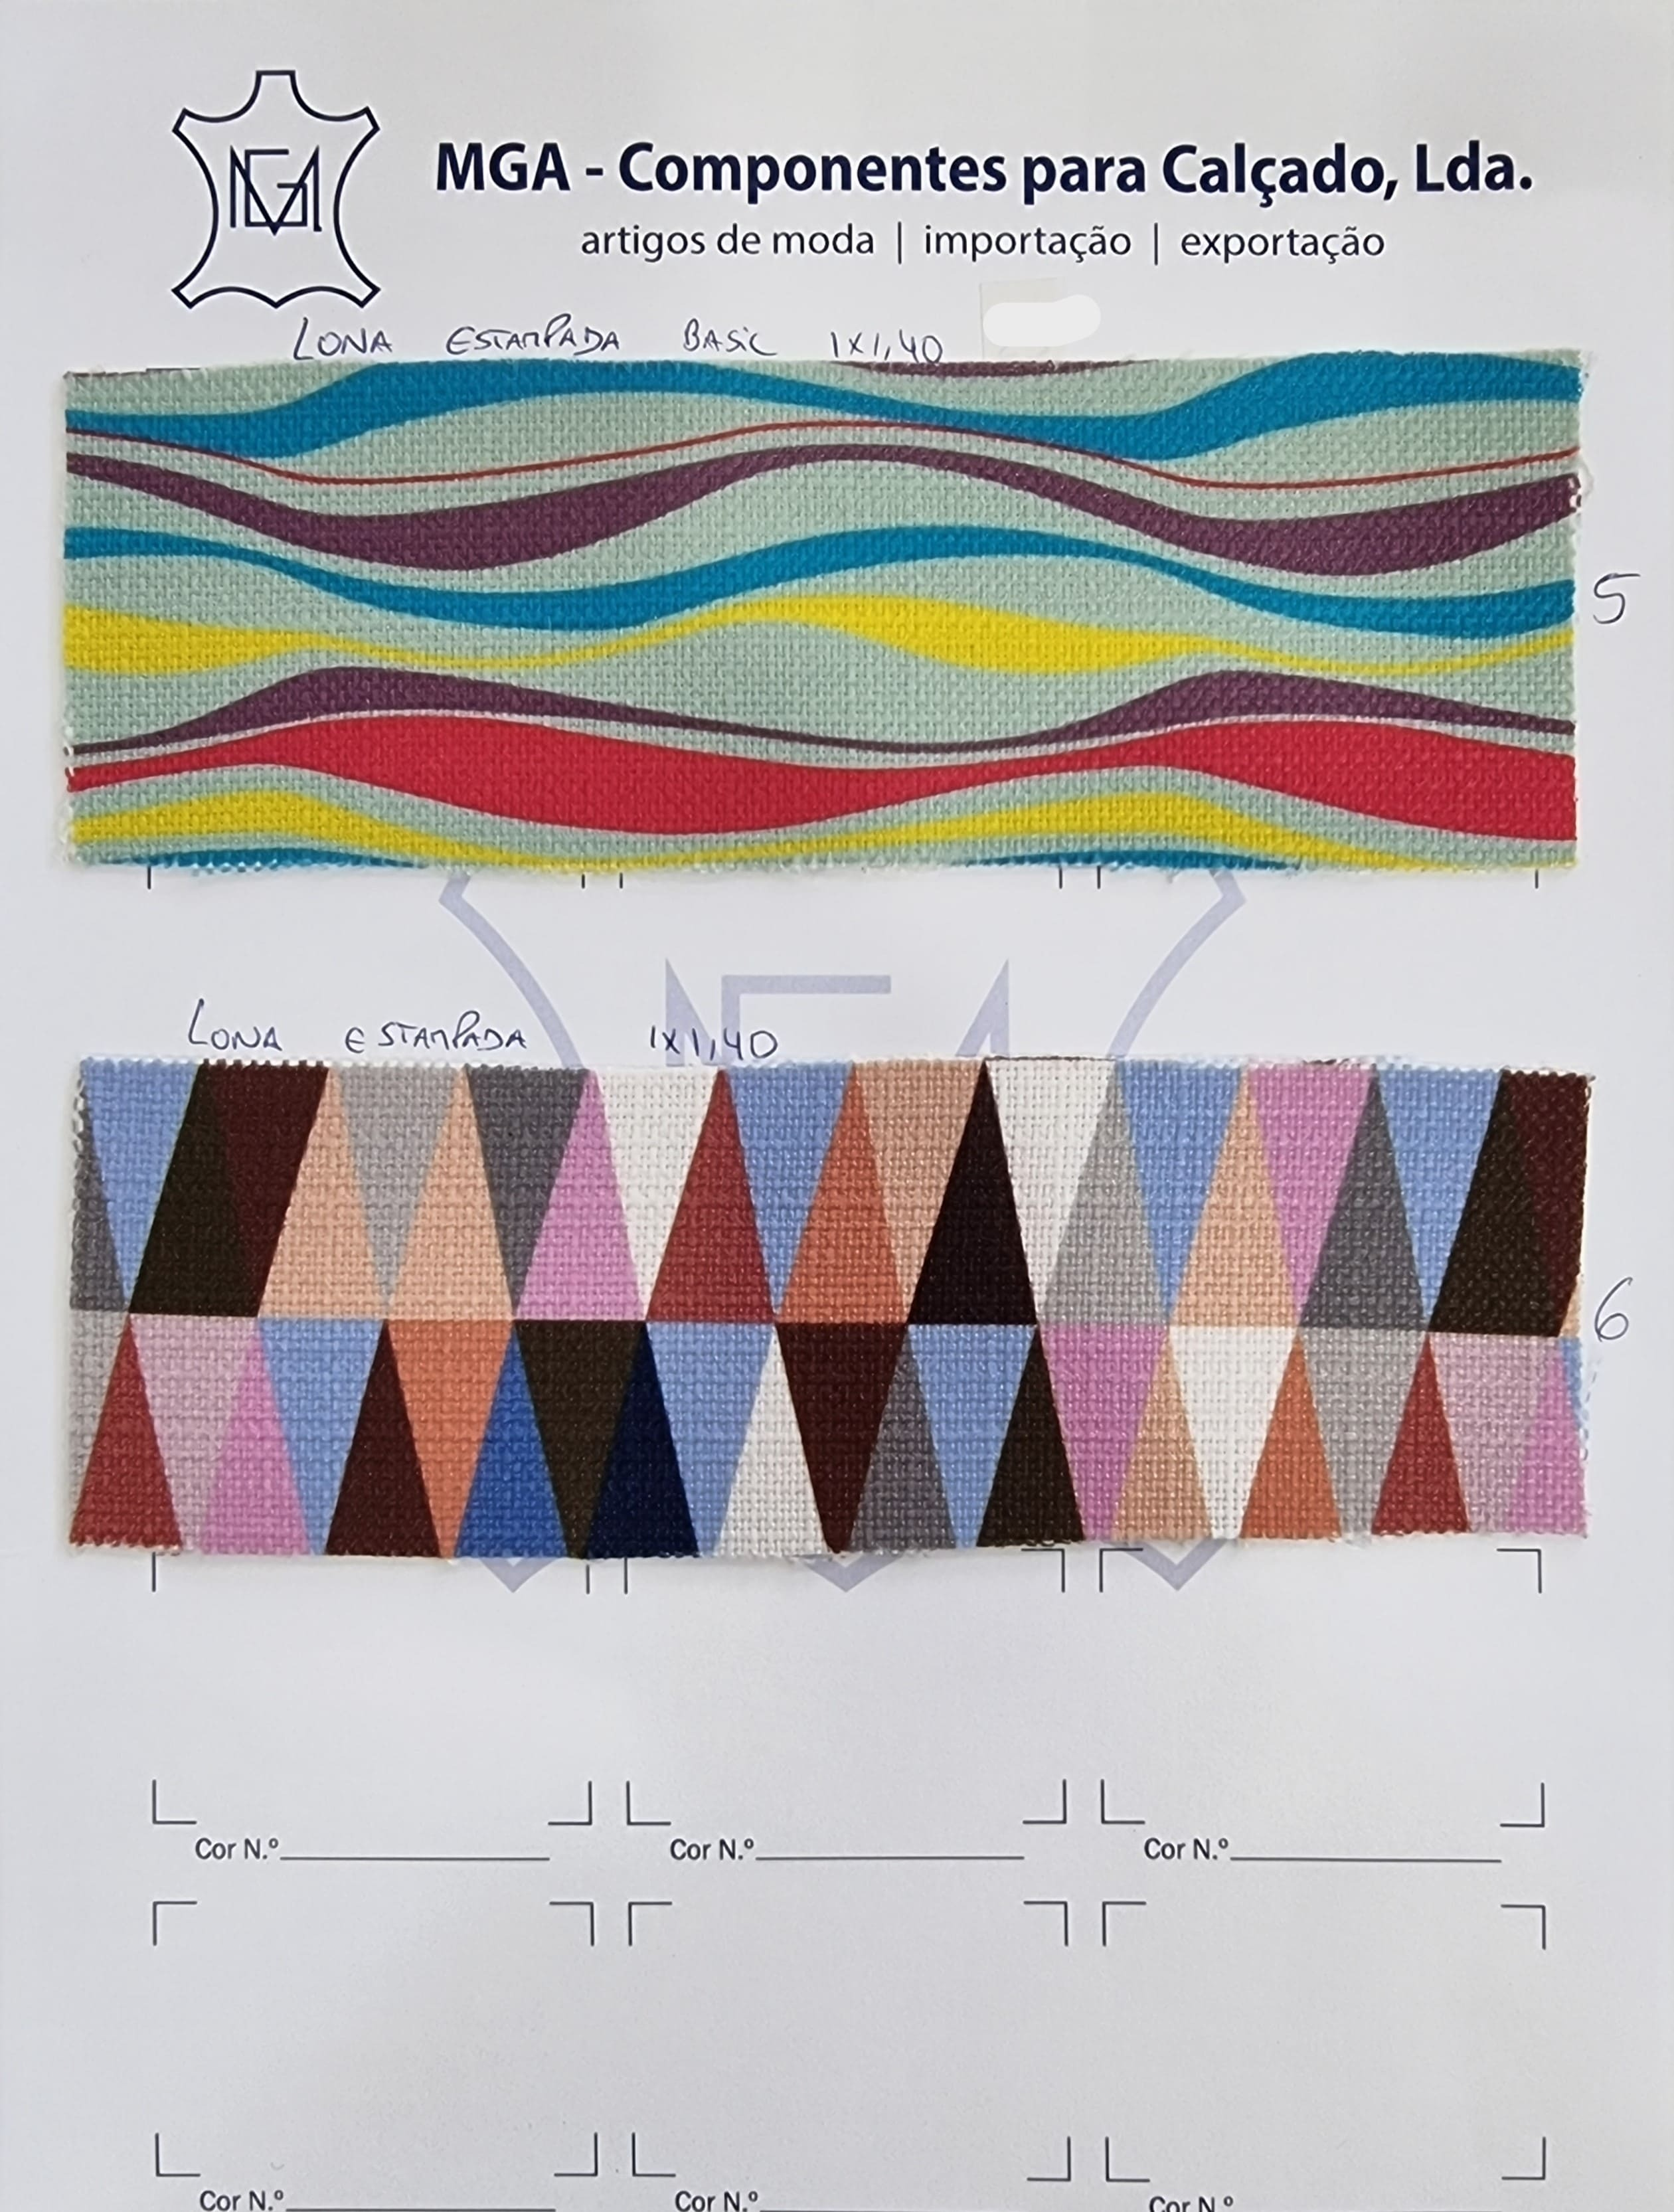 MGA
MGA - Componentes para Calçado, Lda.
artigos de moda | importação | exportação
LONA ESTAMPADA BASIC 1X1,40
5
LONA ESTAMPADA 1X1,40
6
Cor N.º Cor N.º Cor N.º
Cor N.º Cor N.º Cor N.º